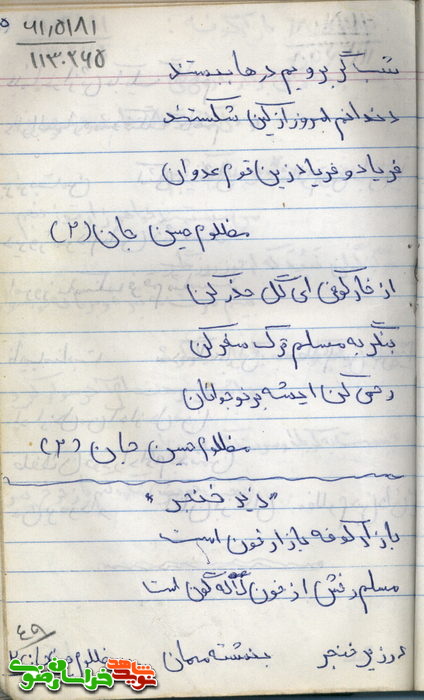 ۶۱٫۵۱۸۱
۱۱۳۰۲۶۵
شب گر برویم درها ببستند
دندانم امروز از کین شکستند
فریاد و فریاد زین قوم عدوان
مظلوم حسین جان (۲)
از خار کوفی ای گل حذر کن
بنگر به مسلم ترک سفر کن
رحمی کن ای شه بر نوجوانان
مظلوم حسین جان (۲)
"زیر خنجر"
بازار کوفه بازار خون است
مسلم رخش از خون لاله گون است
در زیر خنجر بنشسته مهمان مظلوم
۴۹
شاهد
نوید
خراسان رضوی